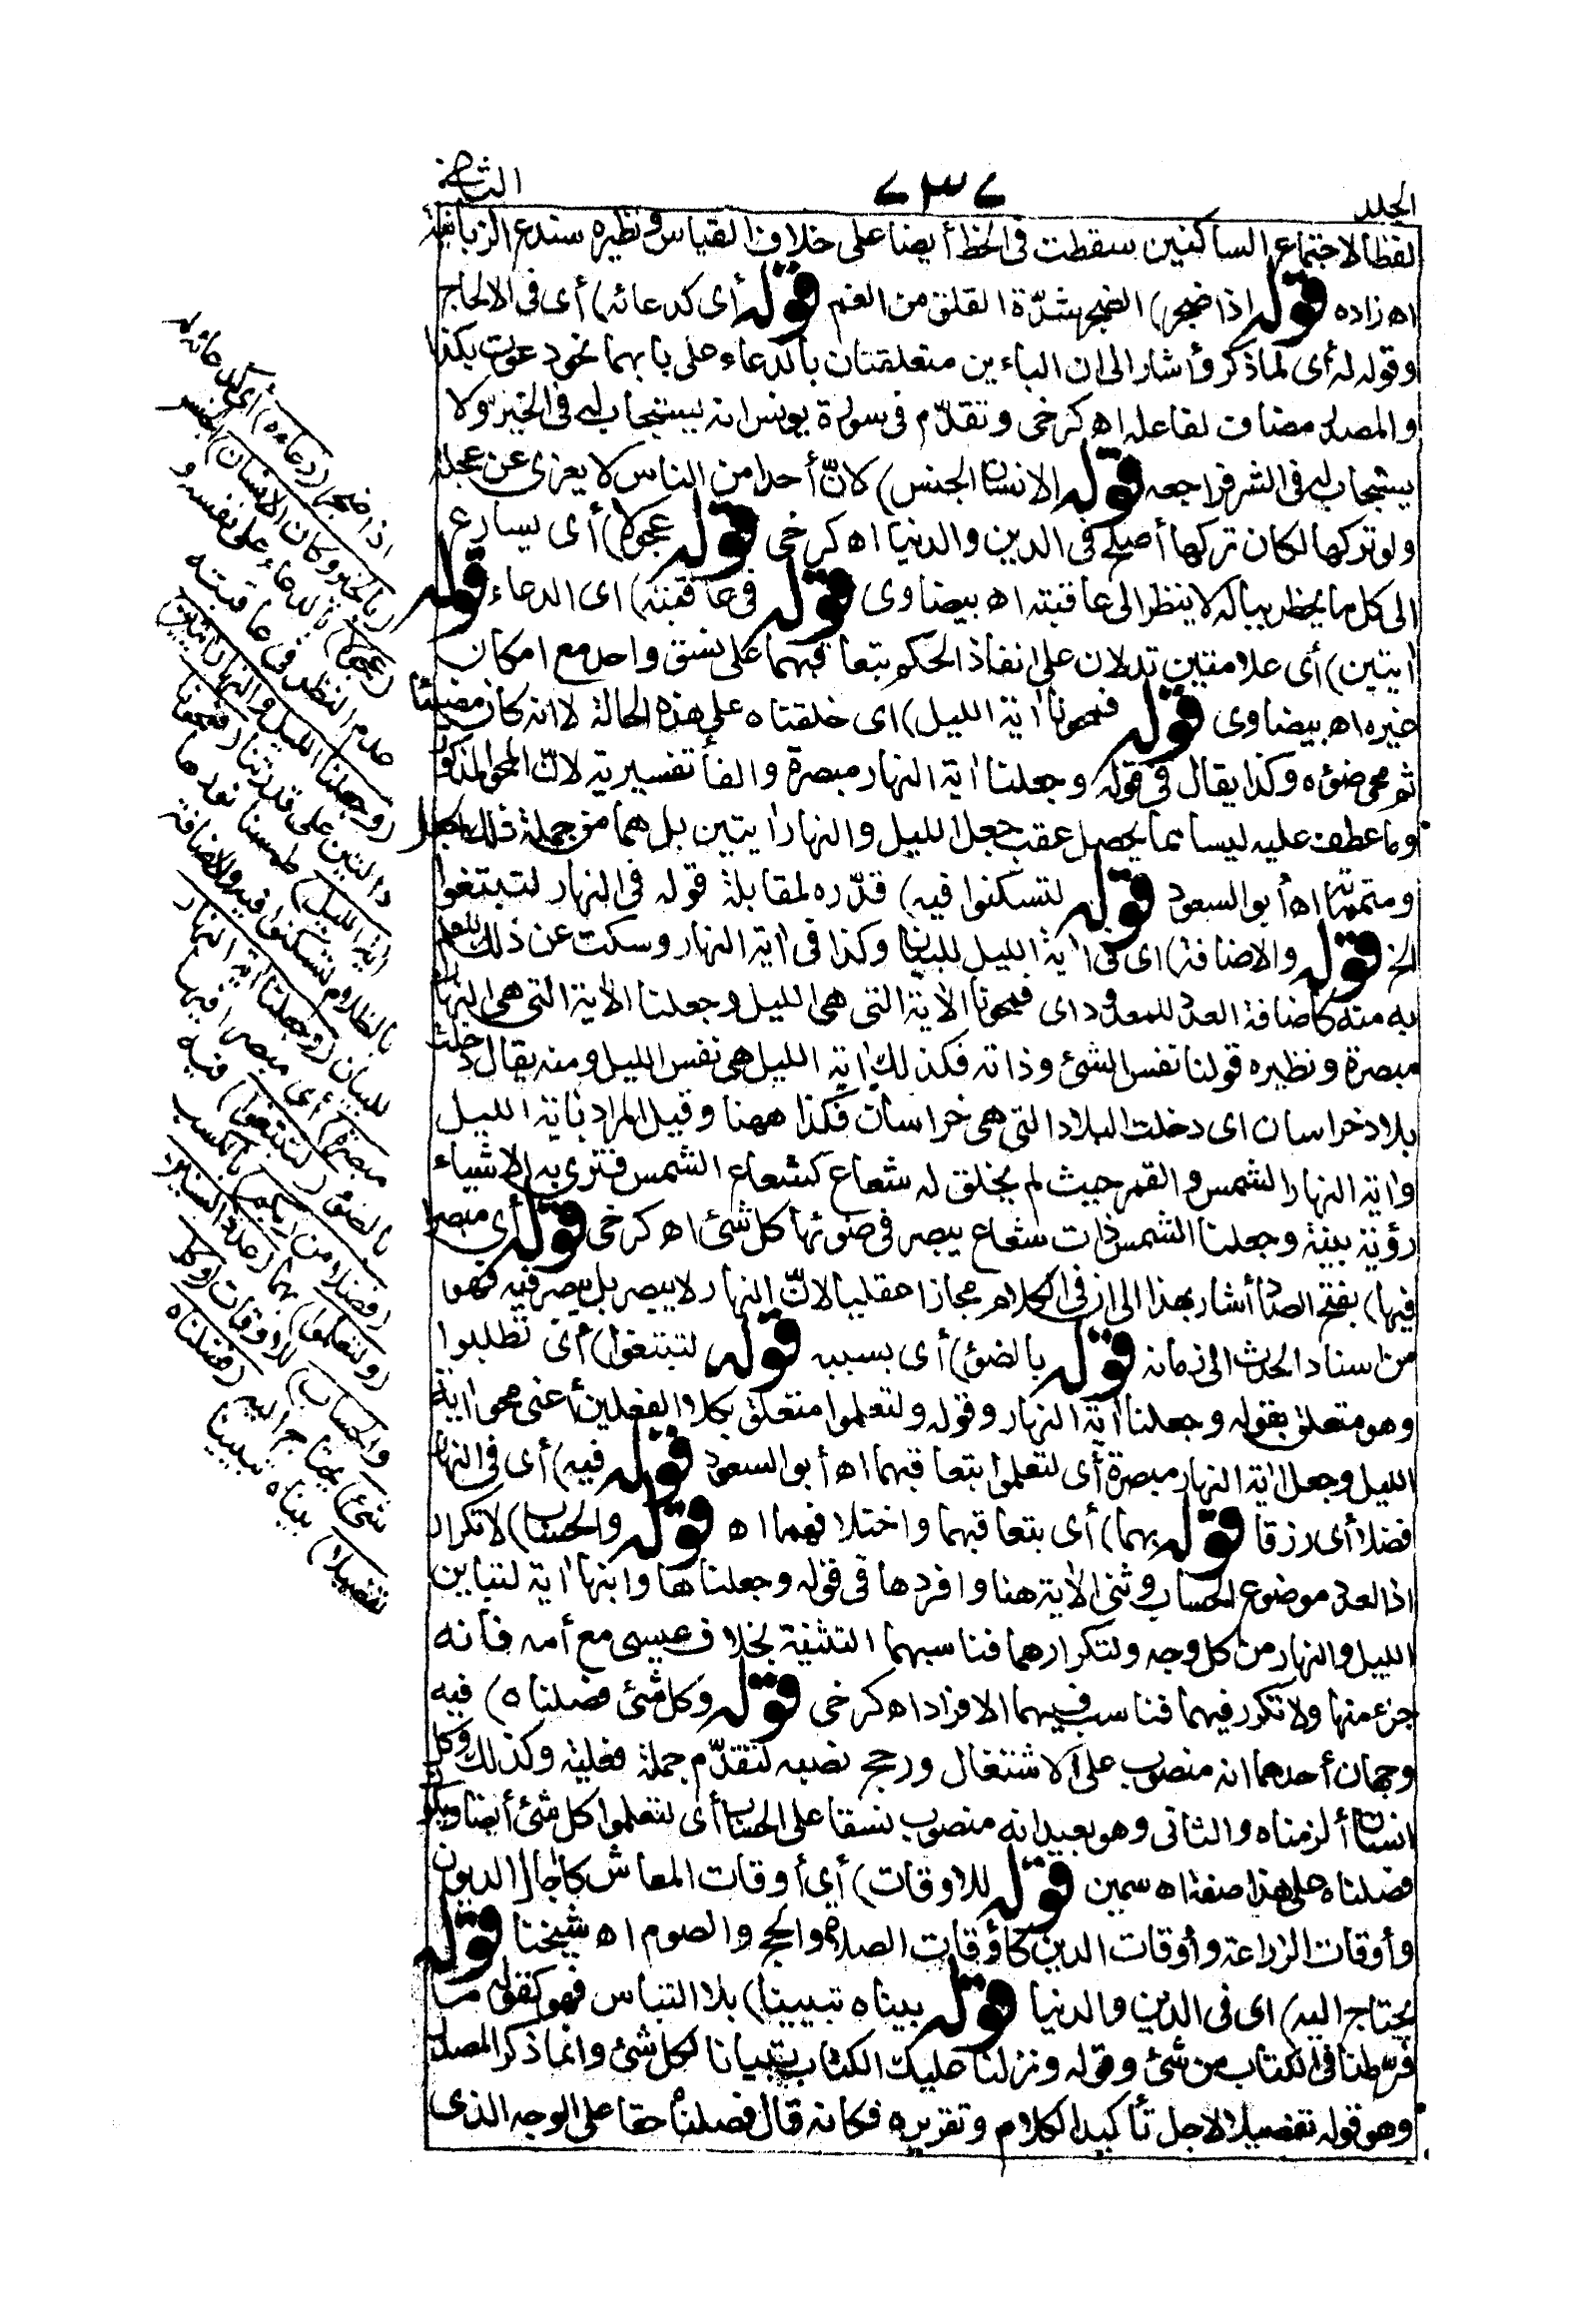 الجلد
٧٣٧
الثانى
لفظا لاجتماع الساكنين سقطت فى الخط أيضا على خلاف القياس ونظيره سندع الزبانية
اه زاده قوله اذا ضجر) الضجر شدّة القلق من الغم قوله أى كدعائه) أى فى الالحاح
وقوله له أى لما ذكر وأشار الى ان الباءين متعلقتان بالدعاء على بابهما نحو دعوت بكذا
والمصدر مضاف لفاعله اه كرخى وتقدّم فى سورة يونس انه يستجاب له فى الخير ولا
يستجاب له فى الشر فراجعه قوله الانسان الجنس) لانّ أحدا من الناس لا يعرى عن عجلة
ولو تركها لكان تركها أصلح فى الدين والدنيا اه كرخى قوله عجولا) أى يسارع
الى كل ما يخطر بباله لا ينظر الى عاقبته اه بيضاوى قوله فى عاقبته) اى الدعاء قوله
اٰيتين) أى علامتين تدلان على انفاذ الحكم بتعاقبهما على نسق واحد مع امكان
غيره اه بيضاوى قوله فمحونا اٰية الليل) اى خلقناه على هذه الحالة لا انه كان مضيئا
ثم محى ضوئه وكذا يقال فى قوله وجعلنا اٰية النهار مبصرة والفأ تفسيرية لانّ المحو المذكور
وما عطف عليه ليسا مما يحصل عقب جعل الليل والنهار اٰيتين بل هما من جملة ذلك الجعل
ومتمماته اه أبو السعود قوله لتسكنوا فيه) قدّره لمقابلة قوله فى النهار لتبتغوا
الخ قوله والاضافة) اى فى اٰية الليل للبيان وكذا فى اٰية النهار وسكت عن ذلك للعلم
به منه كاضافة العدد للمعدود اى فمحونا الاٰية التى هى الليل وجعلنا الاٰية التى هى النهار
مبصرة ونظيره قولنا نفس الشئ وذاته فكذلك اٰية الليل هى نفس الليل ومنه يقال دخلت
بلاد خراسان اى دخلت البلاد التى هى خراسان فكذا ههنا وقيل المراد باٰية الليل
واٰية النهار الشمس والقمر حيث لم يخلق له شعاع كشعاع الشمس فترى به الاشياء
رؤية بينة وجعلنا الشمس ذات شعاع يبصر فى ضوئها كل شئ اه كرخى قوله أى مبصرا
فيها) بفتح الصاد أشار بهذا الى ان فى الكلام مجازا عقليا لانّ النهار لا يبصر بل يبصر فيه فهو
من اسناد الحدث الى زمانه قوله بالضوئ) أى بسببه قوله لتبتغوا) أى تطلبوا
وهو متعلق بقوله وجعلنا اٰية النهار وقوله ولتعلموا متعلق بكلا الفعلين أعنى محو اٰية
الليل وجعل اٰية النهار مبصرة أى لتعلموا بتعاقبهما اه أبو السعود قوله فيه) أى فى النهار
فضلا أى رزقا قوله بهما) أى بتعاقبهما واختلافهما اه قوله والحساب) لا تكرار
اذ العدد موضوع الحساب وثنى الاٰية هنا وافردها فى قوله وجعلناها وابنها اٰية لتباين
الليل والنهار من كل وجه ولتكرارهما فناسبهما التثنية بخلاف عيسى مع أمه فأنه
جزء منها ولا تكرر فيهما فناسب فيهما الافراد اه كرخى قوله وكل شئ فصلناه) فيه
وجهان أحدهما انه منصوب على الاشتغال ورجح نصبه لتقدّم جملة فعلية وكذلك وكل
انسان ألزمناه والثانى وهو بعيد انه منصوب نسقا على الحساب أى لتعلموا كل شئ أيضا ويكون
فصلناه على هذا صفة اه سمين قوله للاوقات) أى أوقات المعاش كاٰجال الديون
وأوقات الزراعة وأوقات الدين كأوقات الصلاة والحج والصوم اه شيخنا قوله
يحتاج اليه) اى فى الدين والدنيا قوله بيناه تبيينا) بلا التباس فهو كقوله ما
فرّطنا فى الكتاب من شئ وقوله ونزلنا عليك الكتاب تبيانا لكل شئ وانما ذكر المصدر
وهو قوله تفصيلا لاجل تأكيد الكلام وتقريره فكانه قال فصلناه حقا على الوجه الذى
اذا ضجر (دعاءه) أى كدعائه له
(بالخير وكان الانسان) الجنس
(عجولا) بالدعاء على نفسه و
عدم النظر فى عاقبته
(وجعلنا الليل والنهار اٰيتين)
دالتين على قدرتنا (فمحونا
اٰية الليل) طمسنا نورها
بالظلام لتسكنوا فيه والاضافة
للبيان (وجعلنا اٰية النهار
مبصرة) أى مبصرا فيها
بالضوئ (لتبتغوا) فيه
(فضلا من ربكم) بالكسب
(ولتعلموا) بهما (عدد السنين
والحساب) للاوقات (وكل
شئ) يحتاج اليه (فصلناه
تفصيلا) بيناه تبيينا